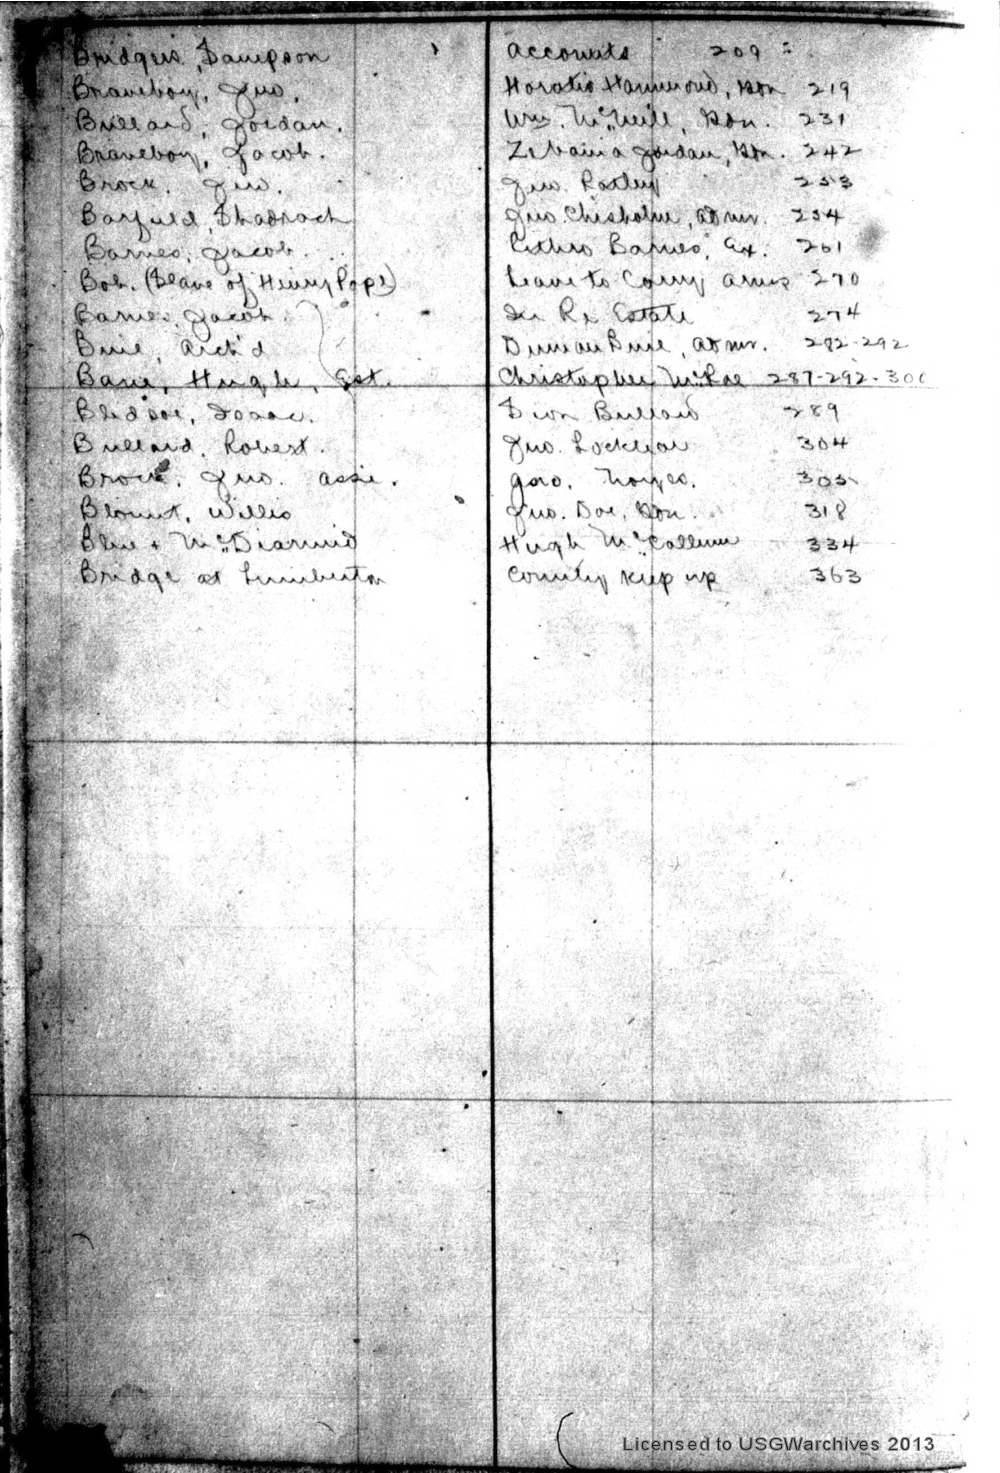 Bridgers, Sampson accounts 209
Braveboy, Jno. Horatio Hammond, Bon 219
Bullard, Jordan. Wm. McNeill, Bon. 231
Braveboy, Jacob. Jordan, Bn. 242
Brock. Jno. Jno. 253
Barfield, Shadrach Jno. Chisholm, admr. 254
Barnes, Jacob. Barnes, Ex. 261
Bob. (Slave of Henry Pope) Leave to Carry arms 270
Barnes, Jacob In Re Estate 274
Buie, Arch'd Duncan Buie, admr. 282-292
Hugh, Est. Christopher McRae 287-292-300
Bledsoe, Isaac. Sion Bullard 289
Bullard, Robert. Jno. Locklear 304
Brock, Jno. assi. Noyes. 305
Blount, Willis Jno. Doe, Bon. 318
Blue + McDiarmid Hugh McCallum 334
Bridge at Lumberton County keep up 363
Licensed to USGWarchives 2013